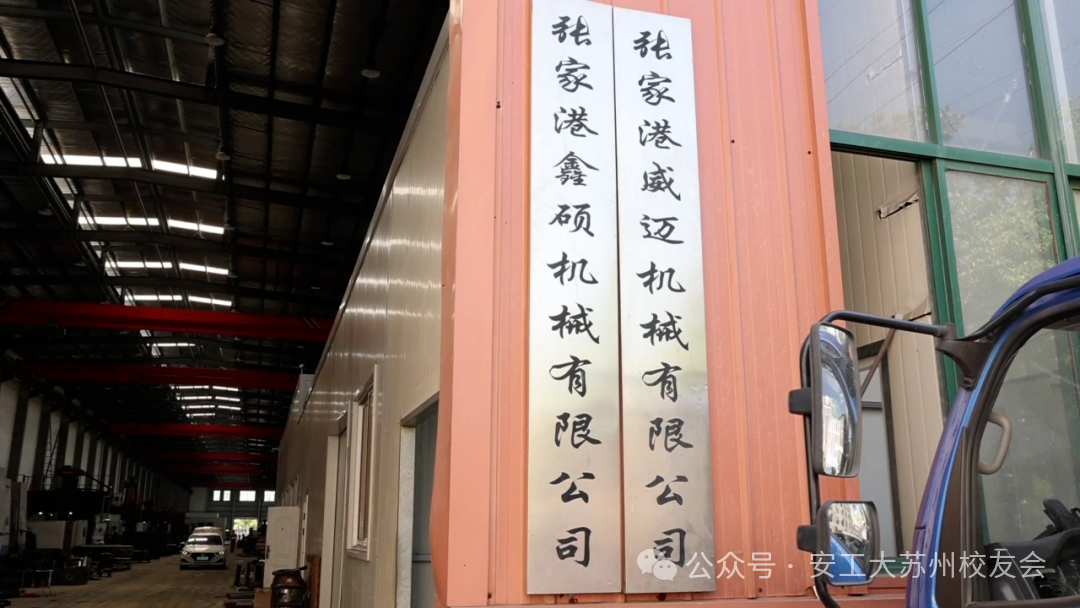 张家港鑫硕机械有限公司
张家港威迈机械有限公司
公众号·安工大苏州校友会